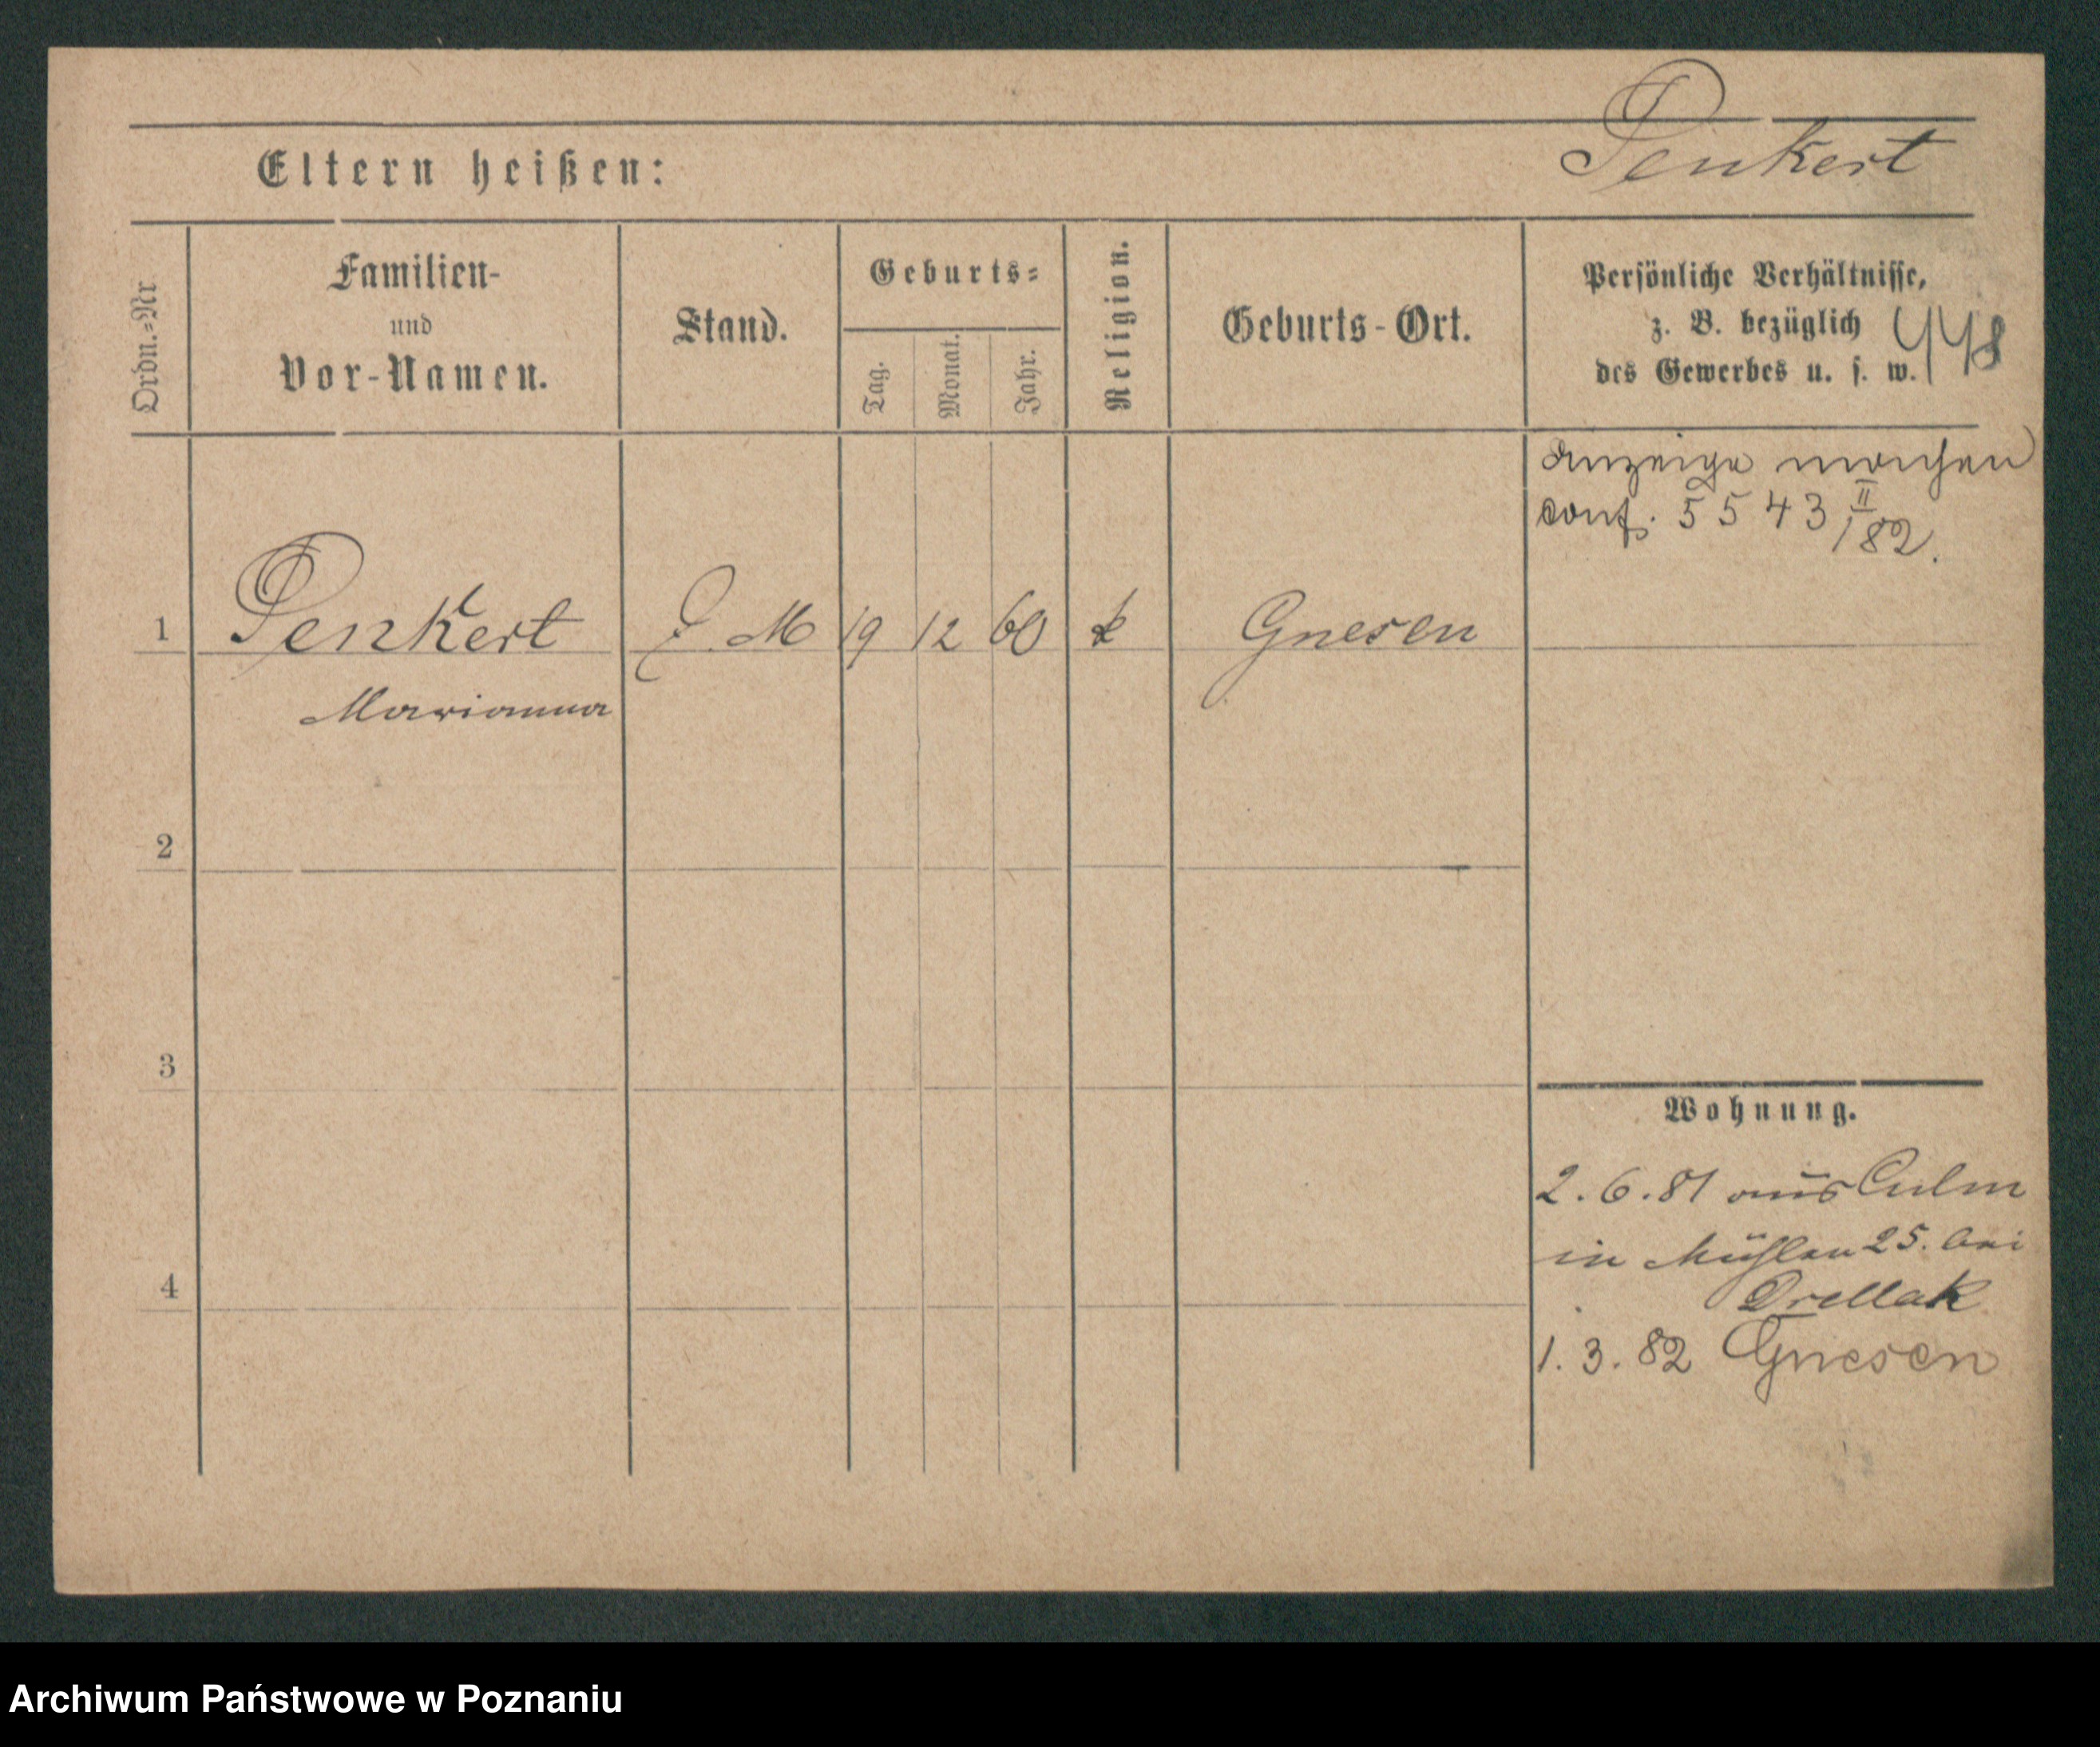 Penkert
Eltern heißen:
Ordn.-Nr
Familien-
und
Vor-Namen.
Stand.
Geburts-
Tag.
Monat.
Jahr.
Religion.
Geburts-Ort.
Persönliche Verhältnisse,
z. B. bezüglich
des Gewerbes u. s. w.
448
Anzeige machen
conf. 5543 II
/82.
1 Penkert M 19 12 60 k Gnesen
Marianna
2
3
4
Wohnung.
2.6.81 aus Culm
in Mühlen 25. bei
Drellak
1.3.82 Gnesen
Archiwum Państwowe w Poznaniu